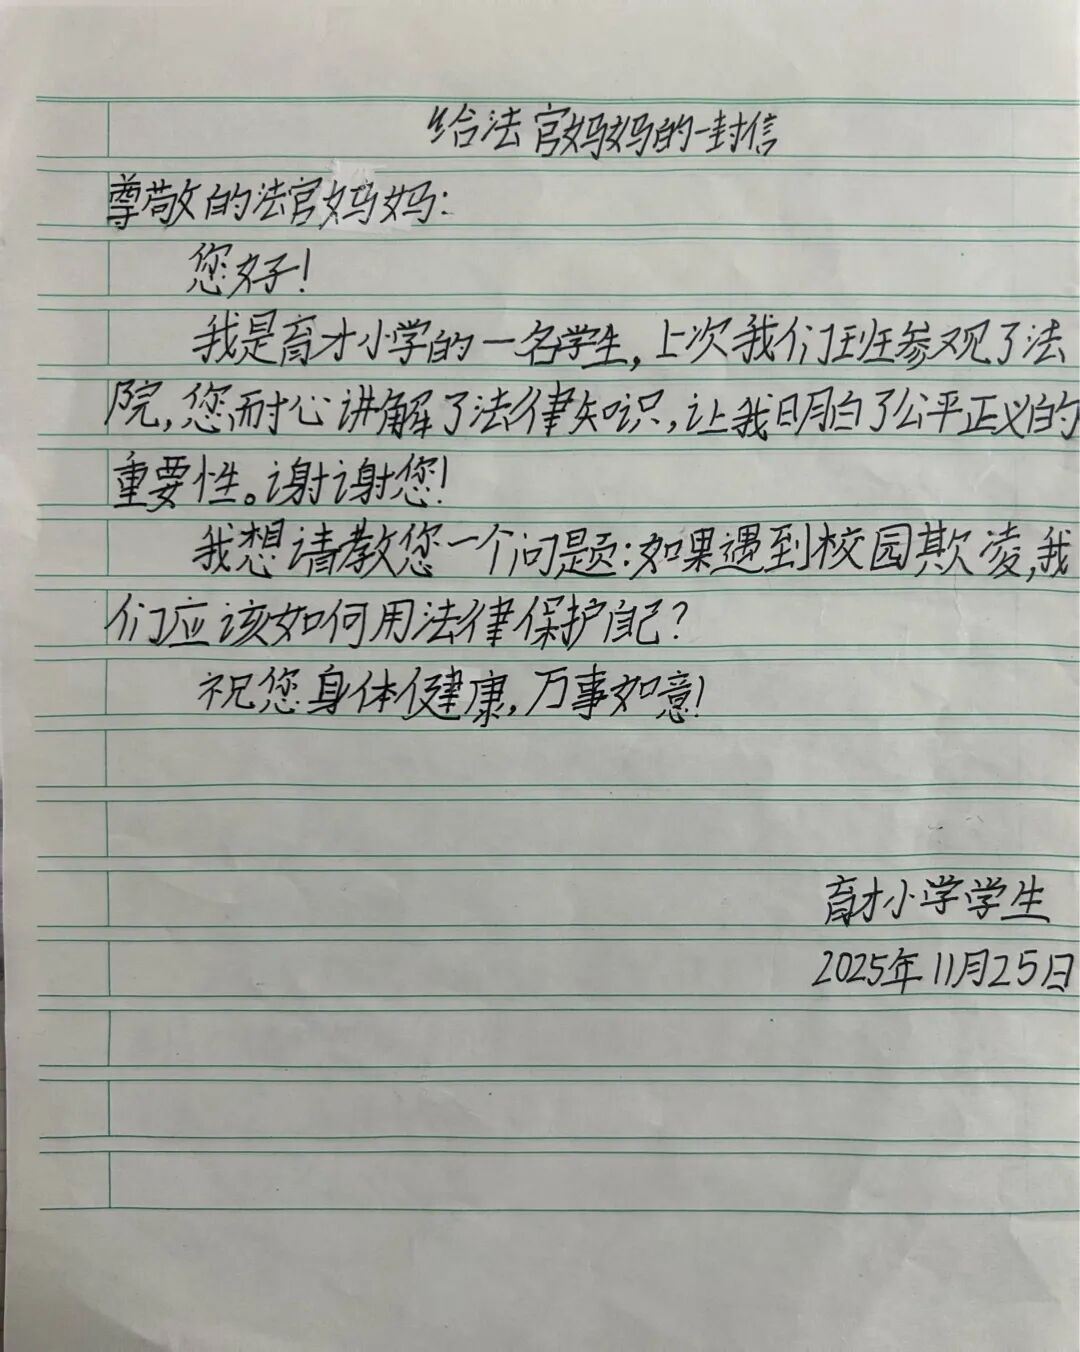 给法官妈妈的一封信
尊敬的法官妈妈:
您好!
我是育才小学的一名学生,上次我们班参观了法
院,您耐心讲解了法律知识,让我明白了公平正义的
重要性。谢谢您!
我想请教您一个问题:如果遇到校园欺凌,我
们应该如何用法律保护自己?
祝您身体健康,万事如意!
育才小学学生
2025年11月25日